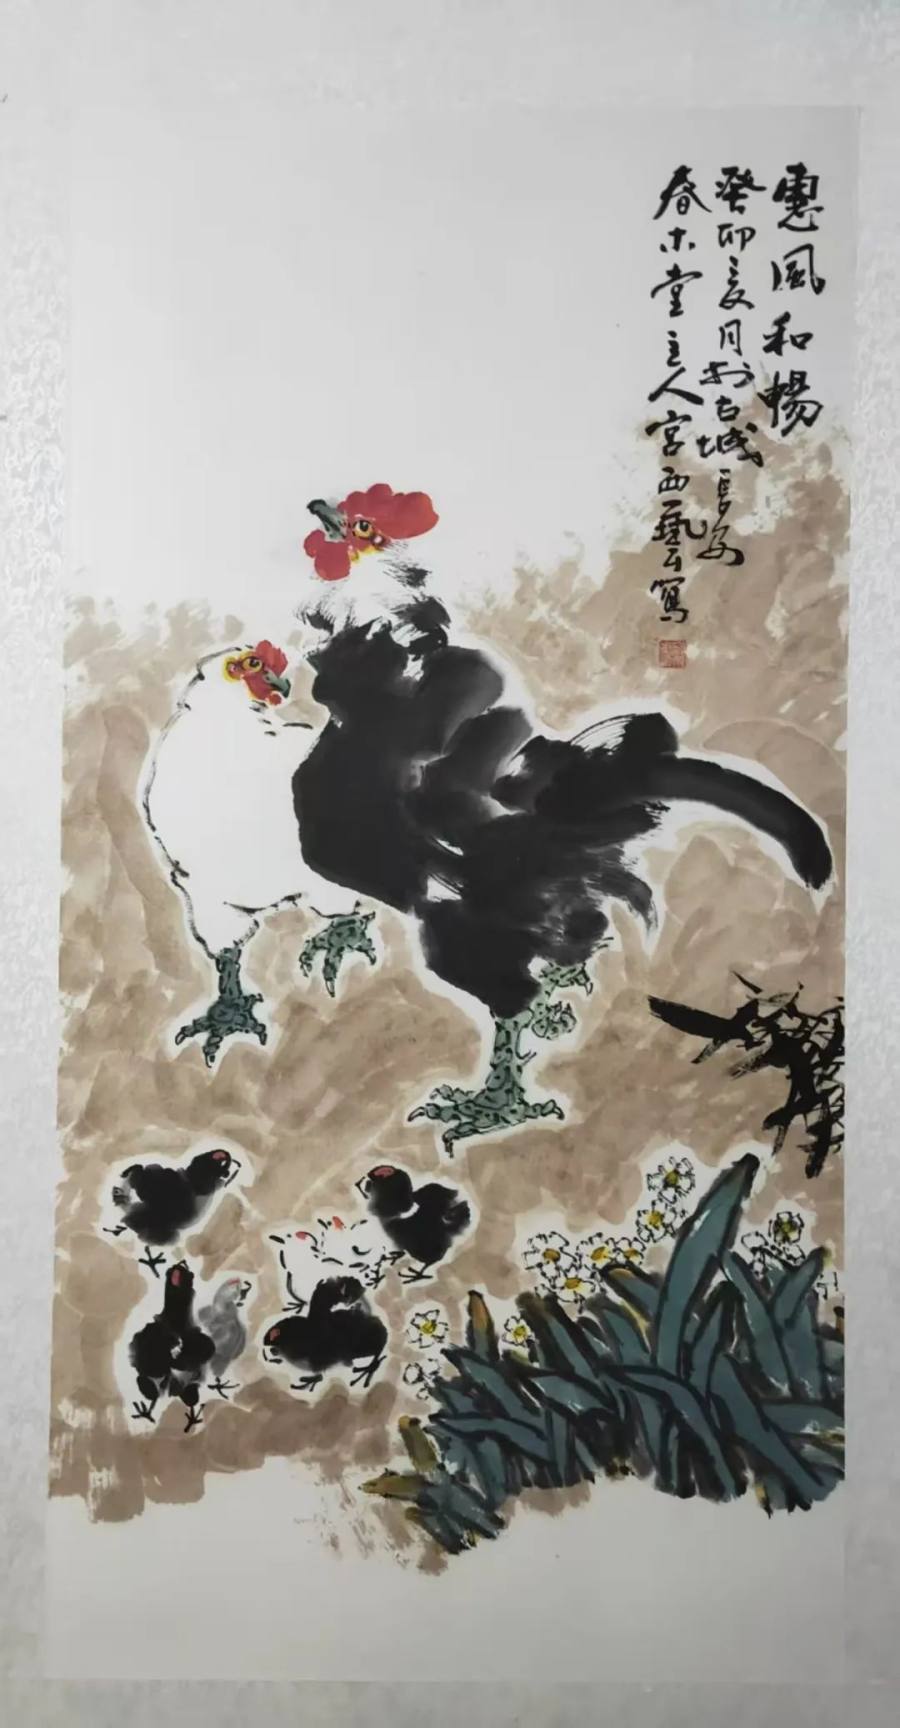 惠風和暢
癸卯亥月於古城長安
春木堂主人宫西藝云寫